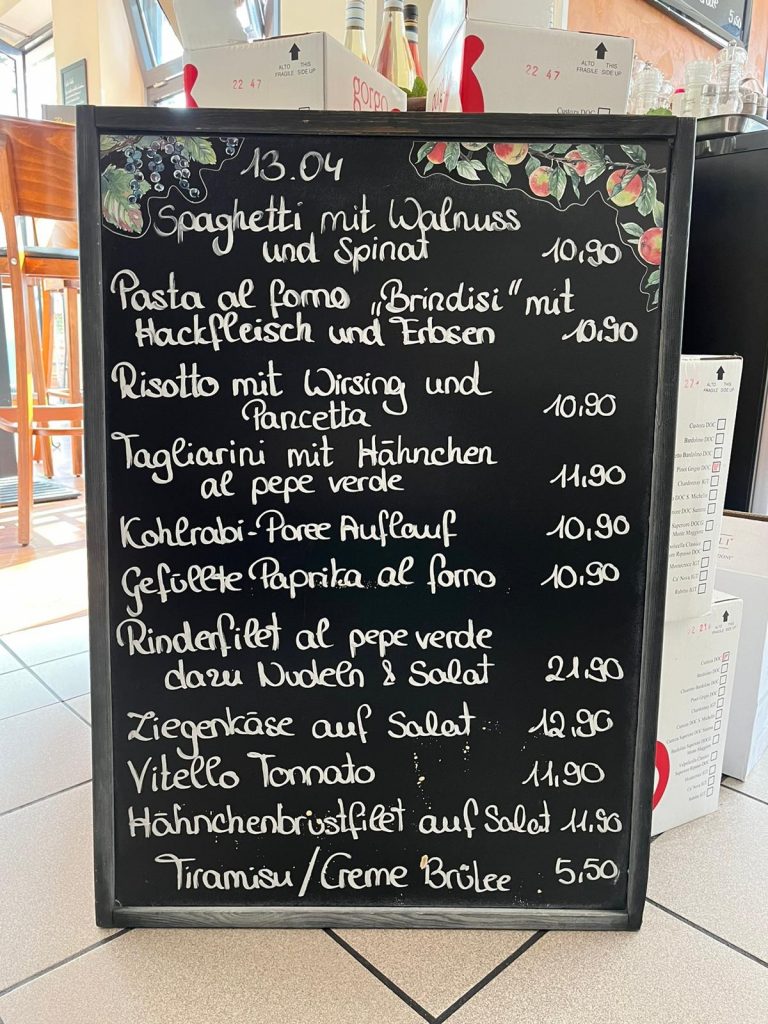 ALTO THIS
FRAGILE SIDE UP
22 47
ALTO THIS
FRAGILE SIDE UP
22 47
5,50
13.04
Spaghetti mit Walnuss
und Spinat 10,90
Pasta al forno „Brindisi" mit
Hackfleisch und Erbsen 10,90
Risotto mit Wirsing und
Pancetta 10,90
Tagliarini mit Hähnchen
al pepe verde 11,90
Kohlrabi-Poree Auflauf 10,90
Gefüllte Paprika al forno 10,90
Rinderfilet al pepe verde
dazu Nudeln & Salat 21,90
Ziegenkäse auf Salat 12,90
Vitello Tonnato 11,90
Hähnchenbrustfilet auf Salat 11,90
Tiramisu/Creme Brülee 5,50
ALTO THIS
FRAGILE SIDE UP
Custoza DOC
Bardolino DOC
Pinot Grigio DOC
Chardonnay IGT